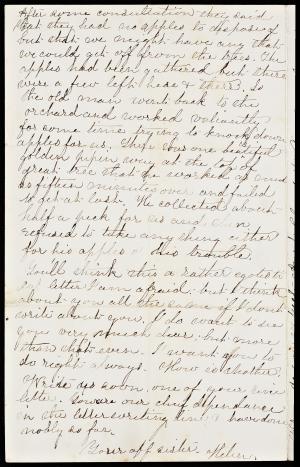 After some consultation they said
that they had no apples to dispose of
but that we might have any that
we could get off from the trees. The
apples had been gathered but there
were a few left here & there. So
the old man went back to the
orchard and worked valiantly
for some time trying to knock down
apples for us. There was one beautiful
golden pippin away at the top of a
great tree that he worked
as fifteen minutes over and failed
to get at last. He collected about
half a peck for us and then
refused to take anything either
for his apples or his trouble.
You'll think this a rather egotistical
letter I am afraid. but I think
about you all the same if I don't
write about you. I do want to see
you very much dear, but more
than that even. I want you to
do right always. How is
Write us soon, one of your nice
letters. You are our chief dependance
in the letter writing line & have done
nobly so far.
Your aff sister